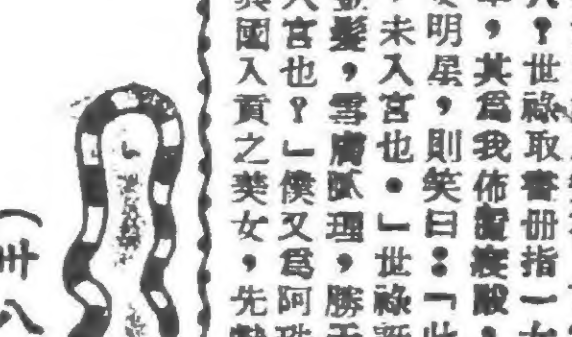 ？世祿取書册指一
，其爲我佈置後殿，
明星，則笑曰：「此
未入宮也。」世祿
髮，雪膚膩理，勝
入宮也？」僕又爲阿珠
國入貢之美女，先
（卅八